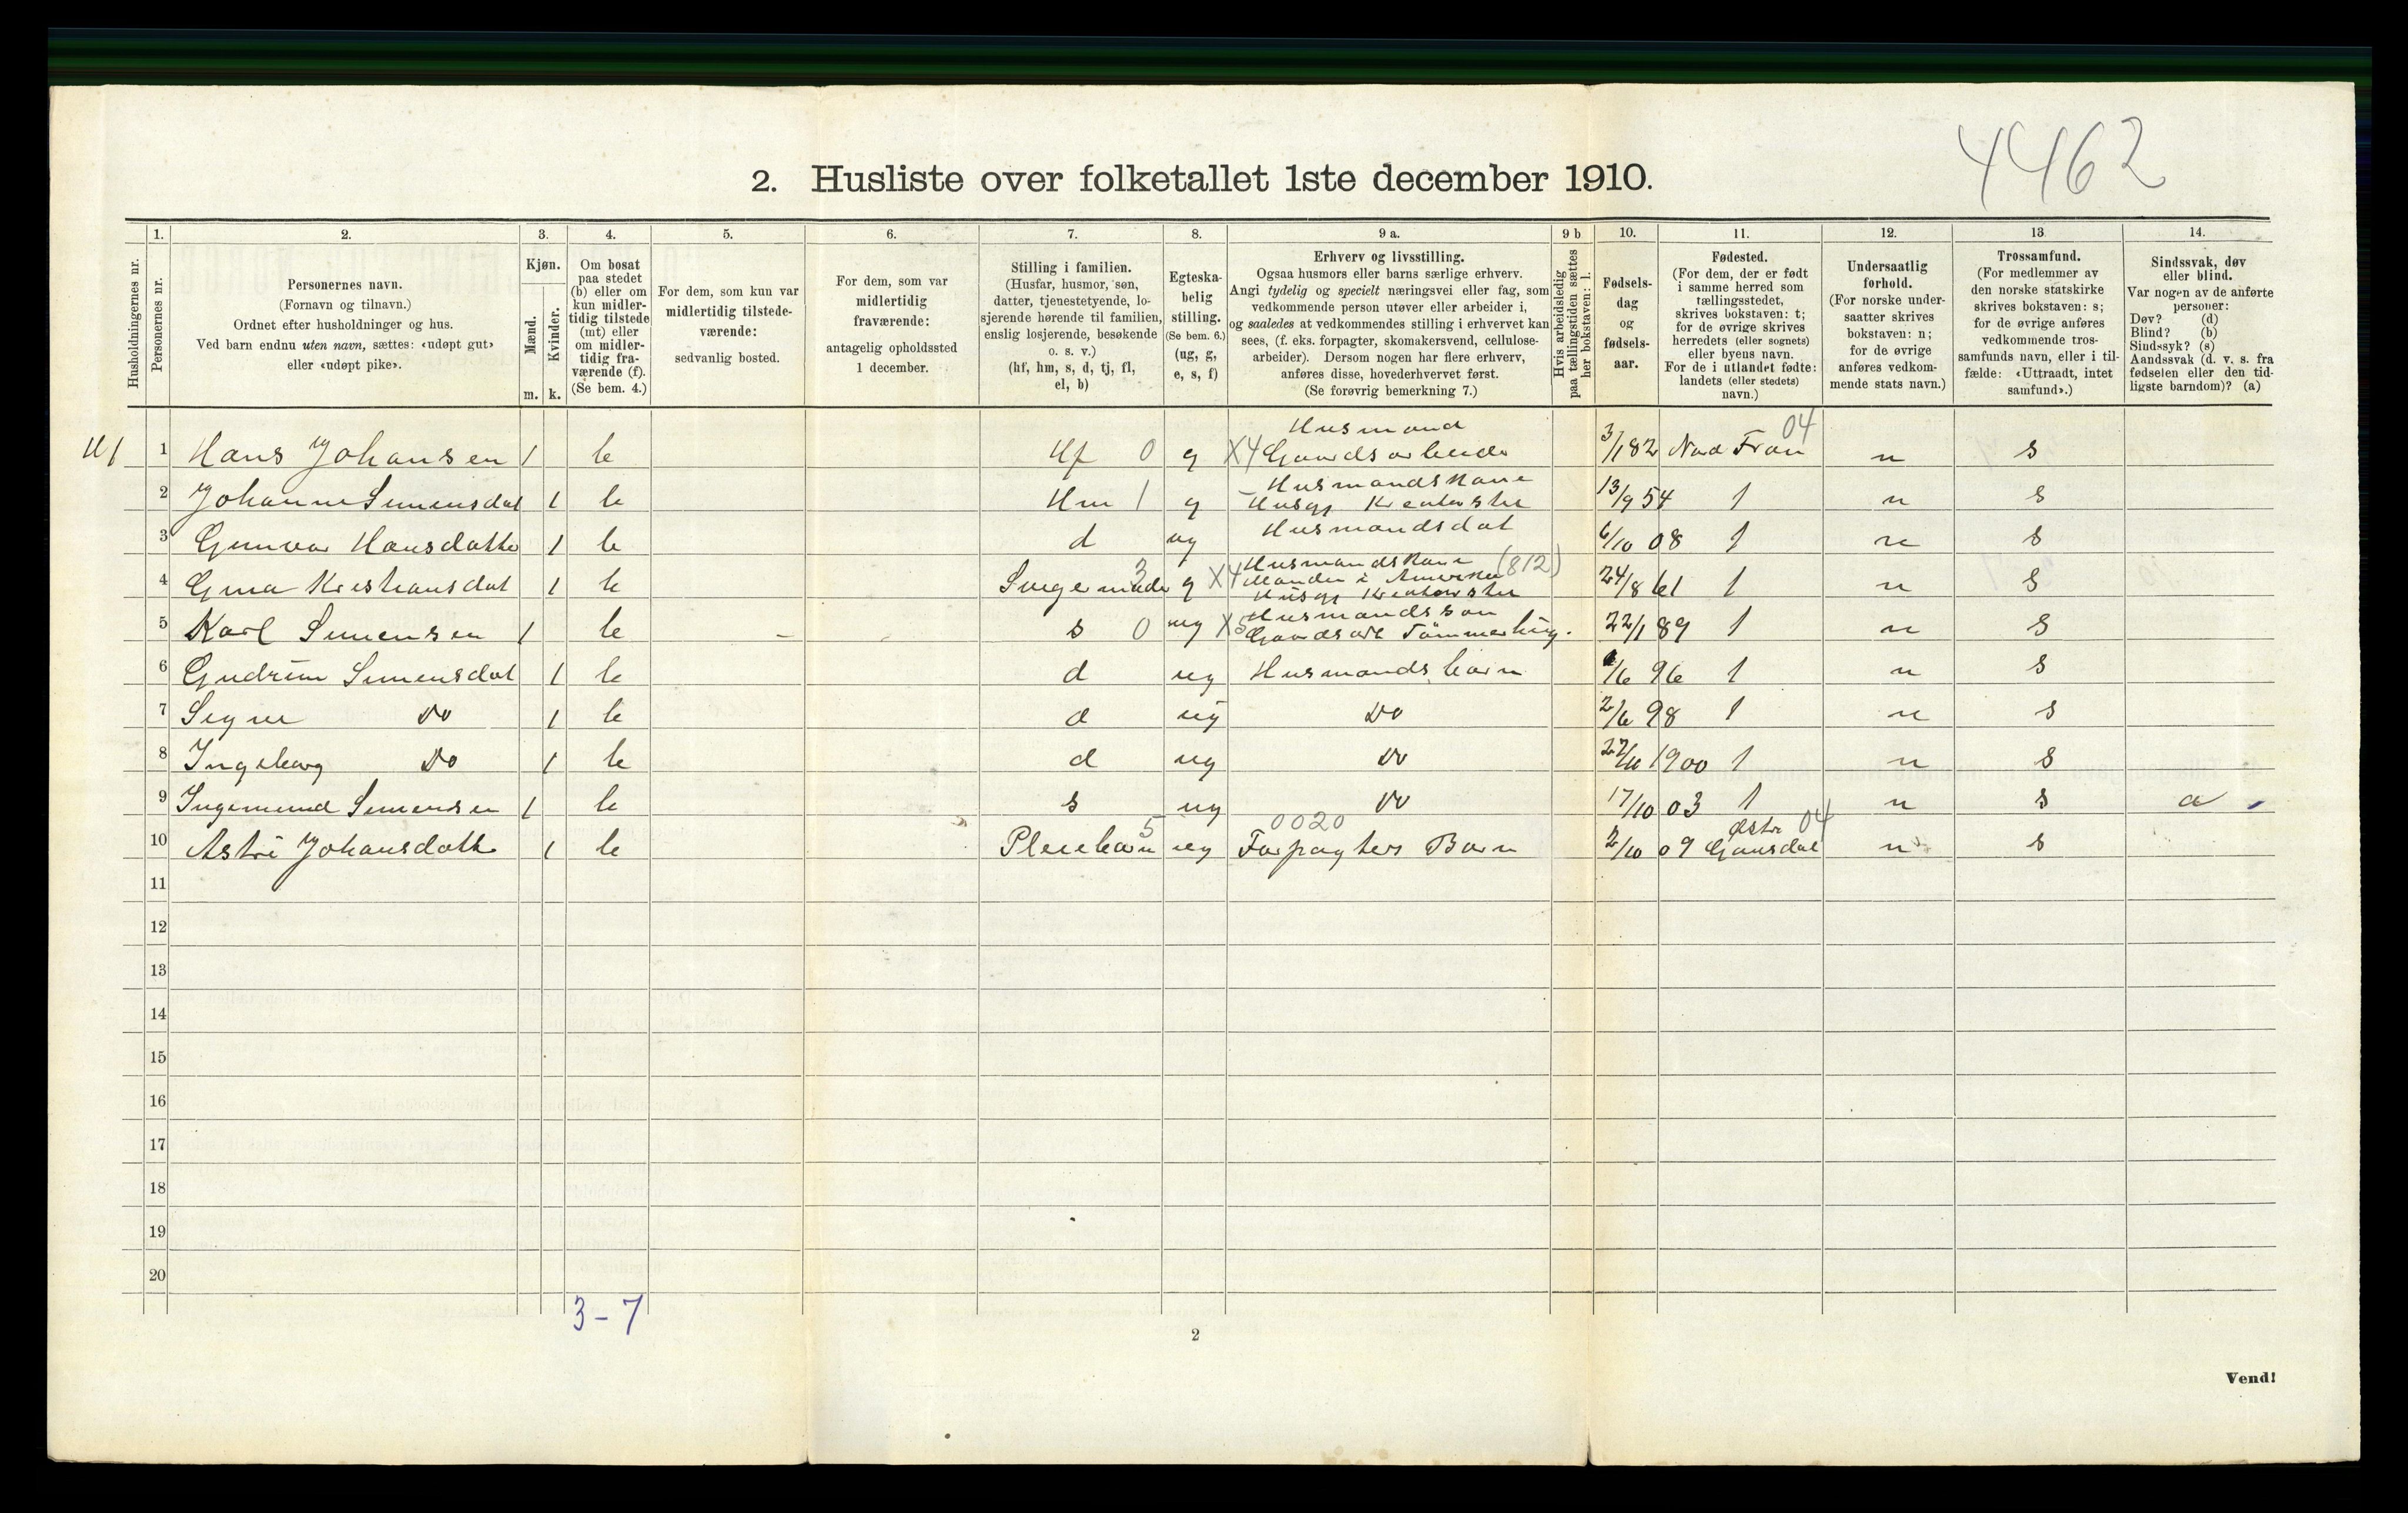 4462
2. Husliste over folketallet 1ste december 1910.
1. 2. 3. 4. 5. 6. 7. 8. 9 a. 9 b 10. 11. 12. 13 14.
Husholdningernes nr.
Personernes nr.
Personernes navn.
(Fornavn og tilnavn.)
Ordnet efter husholdninger og hus.
Ved barn endnu uten navn, sættes: «udøpt gut»
eller «udøpt pike».
Kjøn.
Mænd.
Kvinder.
m. k.
Om bosat
paa stedet
(b) eller om
kun midler-
tidig tilstede
(mt) eller
om midler-
tidig fra-
værende (f).
(Se bem. 4.)
For dem, som kun var
midlertidig tilstede-
værende:
sedvanlig bosted.
For dem, som var
midlertidig
fraværende:
antagelig opholdssted
1 december.
Stilling i familien.
(Husfar, husmor, søn,
datter, tjenestetyende, lo-
sjerende hørende til familien,
enslig losjerende, besøkende
o. s. v.)
(hf, hm, s, d, tj, fl,
el, b)
Egteska-
belig
stilling.
(Se bem. 6.)
(ug, g,
e, s, f)
Erhverv og livsstilling.
Ogsaa husmors eller barns særlige erhverv.
Angi tydelig og specielt næringsvei eller fag, som
vedkommende person utøver eller arbeider i,
og saaledes at vedkommendes stilling i erhvervet kan
sees, (f. eks. forpagter, skomakersvend, cellulose-
arbeider). Dersom nogen har flere erhverv,
anføres disse, hovederhvervet først.
(Se forøvrig bemerkning 7.)
Hvis arbeidsledig
paa tællingstiden sættes
her bokstaven: l.
Fødsels-
dag
og
fødsels-
aar.
Fødested.
(For dem, der er født
i samme herred som
tællingsstedet,
skrives bokstaven: t;
for de øvrige skrives
herredets (eller sognets)
eller byens navn.
For de i utlandet fødte:
landets (eller stedets)
navn.)
Undersaatlig
forhold.
(For norske under-
saatter skrives
bokstaven: n;
for de øvrige
anføres vedkom-
mende stats navn.)
Trossamfund.
(For medlemmer av
den norske statskirke
skrives bokstaven: s;
for de øvrige anføres
vedkommende tros-
samfunds navn, eller i til-
fælde: «Uttraadt, intet
samfund».)
Sindssvak, døv
eller blind.
Var nogen av de anførte
personer:
Døv? (d)
Blind? (b)
Sindssyk? (s)
Aandssvak (d. v. s. fra
fødselen eller den tid-
ligste barndom)? (a)
Husmand 04
1 Hans Johansen 1 b Hf 0 g X4 Gaardsarbeide 3/1 82 Nord Fron n s
Husmandskone
2 Johanne Simensdat 1 b Hm 1 g Husgj Kreaturstel 13/9 54 t n s
3 Gunvor Hansdatte 1 b d ug Husmandsdat 6/10 08 t n s
Husmandskone (812)
4 Kristiansdat 1 b 3 g X4 Manden i Amerika 24/8 61 t n s
Husgj Kreaturstel
Husmandssøn
5 Karl Simensen 1 b s 0 ug X5 Gaardsarb Tömmerhug. 22/1 89 t n s
6 Gudrun Simensdat 1 b d ug Husmandsbarn /6 96 t n s
7 Signe Do 1 b d ug Do 2/6 98 t n s
8 Ingeborg Do 1 b d ug Do 1900 t n s
9 Ingemund Simensen 1 b s ug Do 17/10 03 t n s a
5 0020 Østr 04
10 Astri Johansdatt 1 b Pleiebarn ug Forpagters Barn 2/10 09 Gausdal n s
11
12
13
14
15
16
17
18
19
20
3-7
2
Vend!